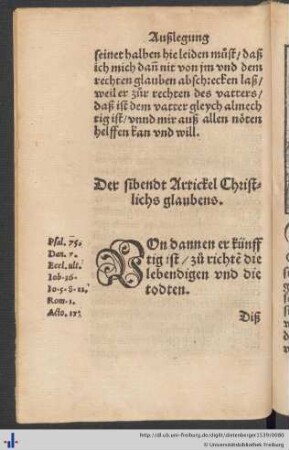 Außlegung
seinet halben hie leiden můst/ daß
ich mich dañ nit von jm vnd dem
rechten glauben abschrecken laß/
weil er zůr rechten des vatters/
daß ist dem vatter gleych almech
tig ist/ vnnd mir auß allen nöten
helffen kan vnd will.
Der sibendt Artickel Christ-
lichs glaubens.
Psal. 75.
Dan. 7.
Eccl. ult.
Iob. 36.
Io. 5. 8. 12.
Rom. 1.
Acto. 17.
VOn dannen er künff
tig ist/ zů richtẽ die
lebendigen vnd die
todten.
Diß
http://dl.ub.uni-freiburg.de/diglit/dietenberger1539/0086
© Universitätsbibliothek Freiburg